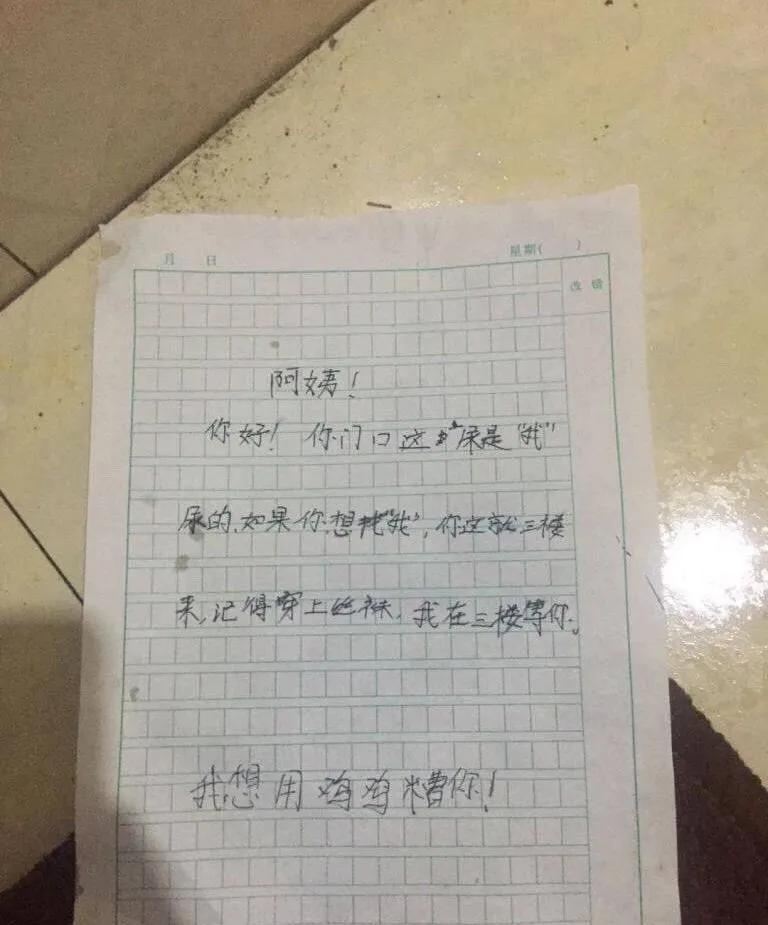 月 日 星期( )
改错
阿姨!
你好! 你门口这尿是“我”
尿的.如果你.想找“我”,你这就三楼
来,记得穿上丝袜,我在三楼等你.
我想用鸡鸡糟你!